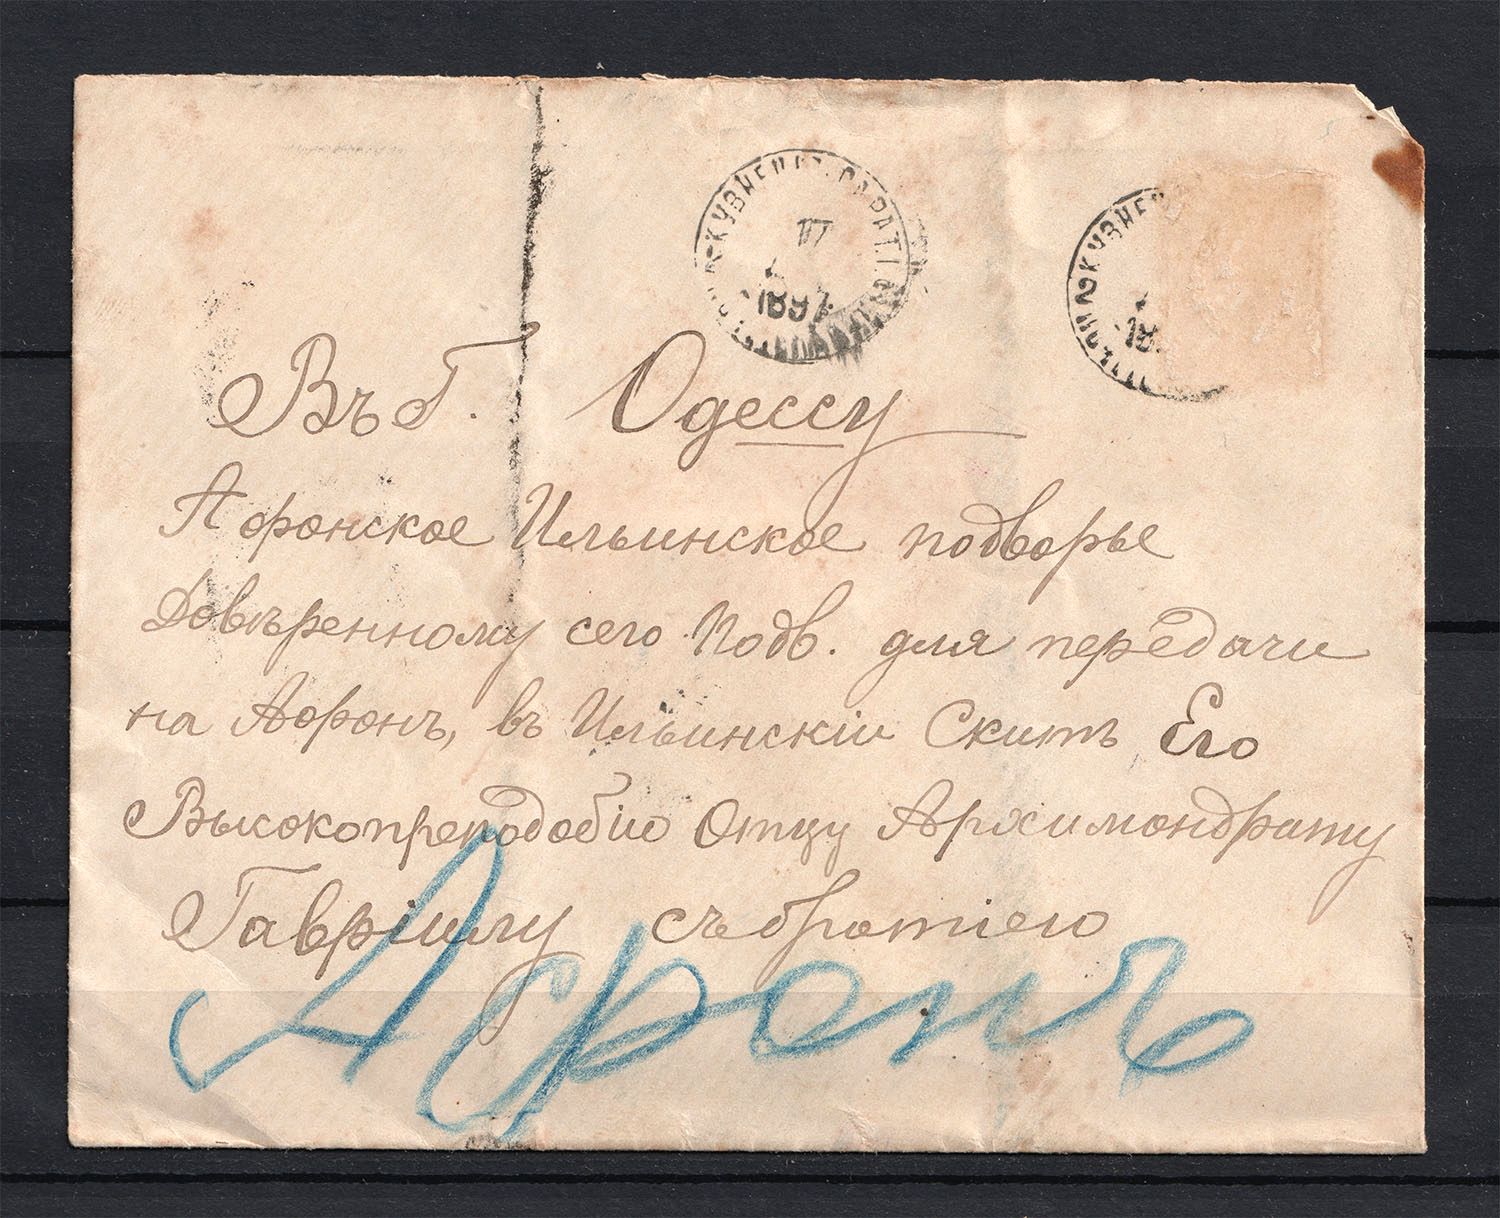 КУЗНЕЦК САРАТ.
VI
1897
2 КУЗНЕ
Въ Г. Одессу
Афонское Ильинское подворье
Довѣренному сего Подв. для передачи
на Афонъ, въ Ильинскій Скитъ Его
Высокопреподобію Отцу Архимандриту
Гавріилу съ братіею
Афонъ